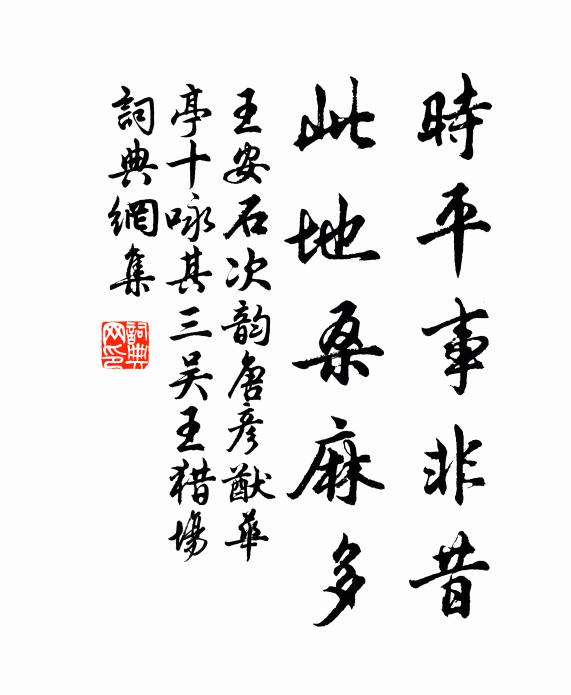 時平事非昔
此地桑麻多
王安石次韵唐彦猷華
亭十咏其三吴王猎場
詞典網集
詞典網印